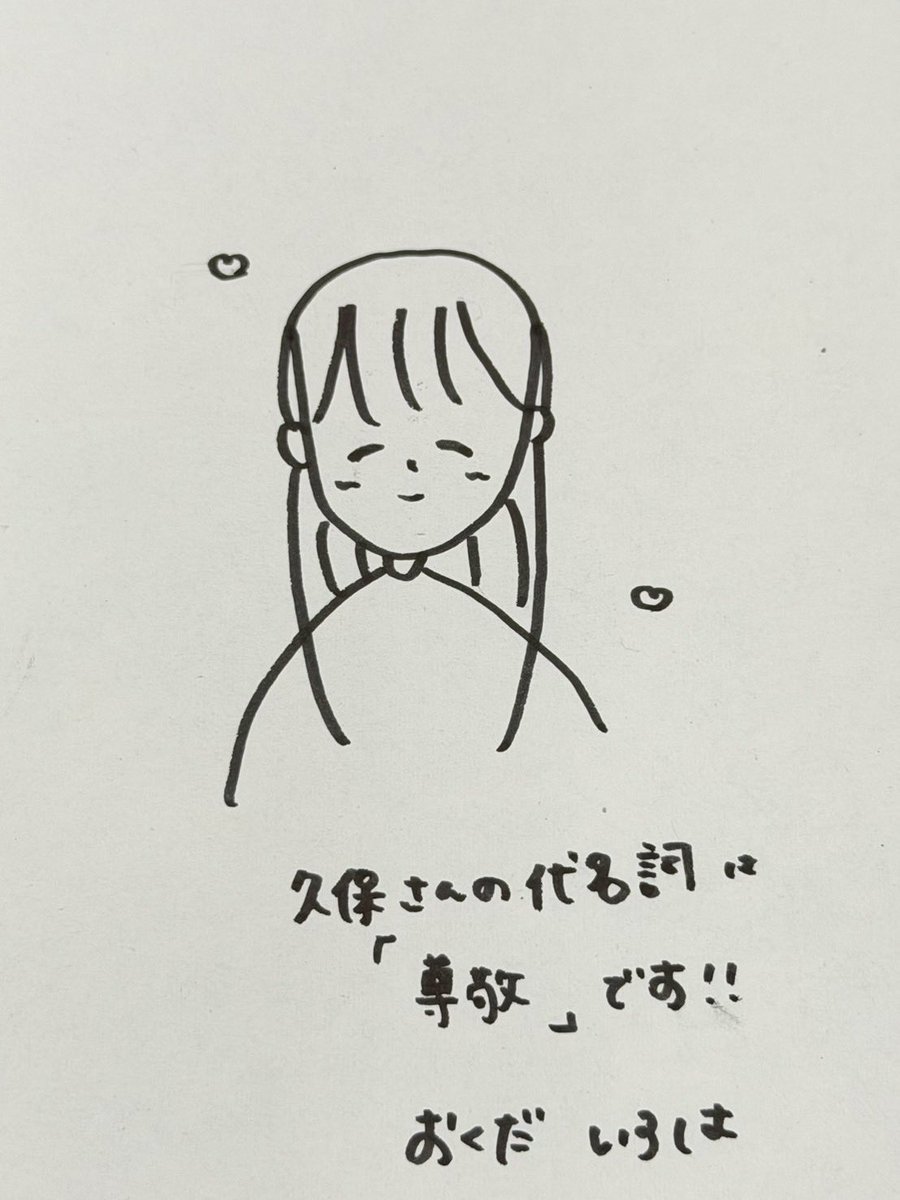 久保さんの代名詞は
「尊敬」です!!
おくだ いろは